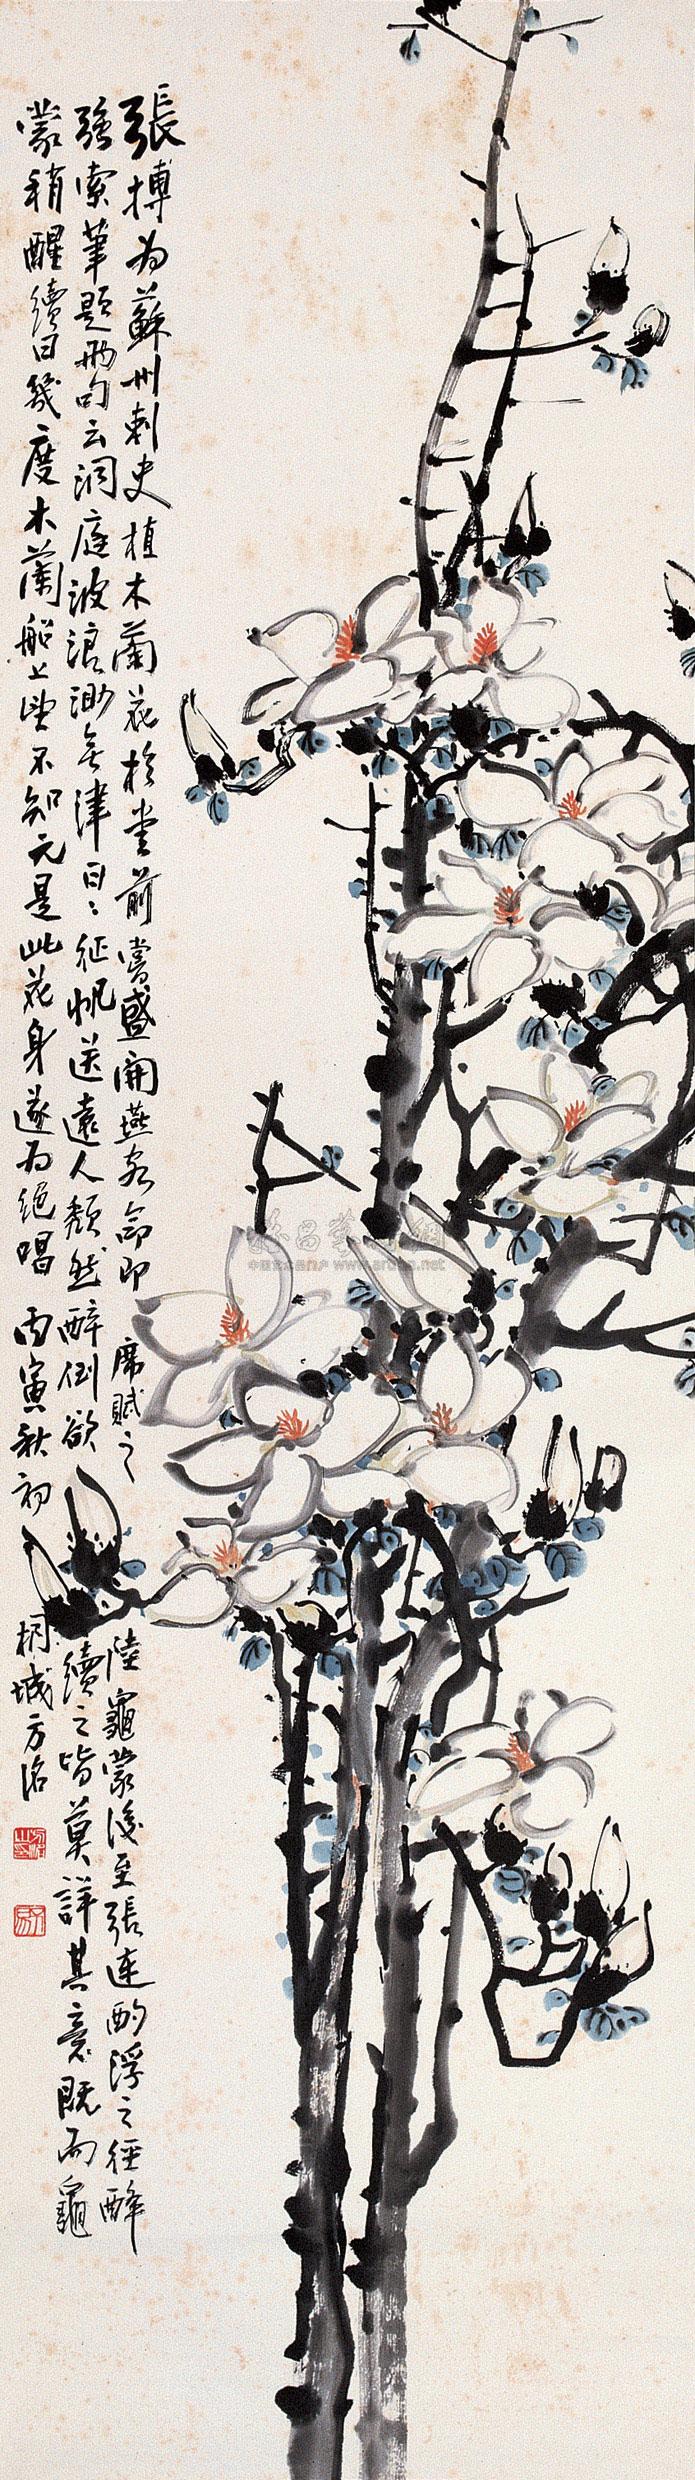 張摶為蘇州刺史植木蘭花於堂前嘗盛開燕客命即席賦之陸龜蒙後至張連酌浮之徑醉
強索筆題兩句云洞庭波浪渺無津日〻征帆送遠人頹然醉倒欲續之皆莫詳其意既而龜
蒙稍醒續曰幾度木蘭船上望不知元是此花身遂為絕唱 丙寅秋初 桐城方洺
www.artxun.net